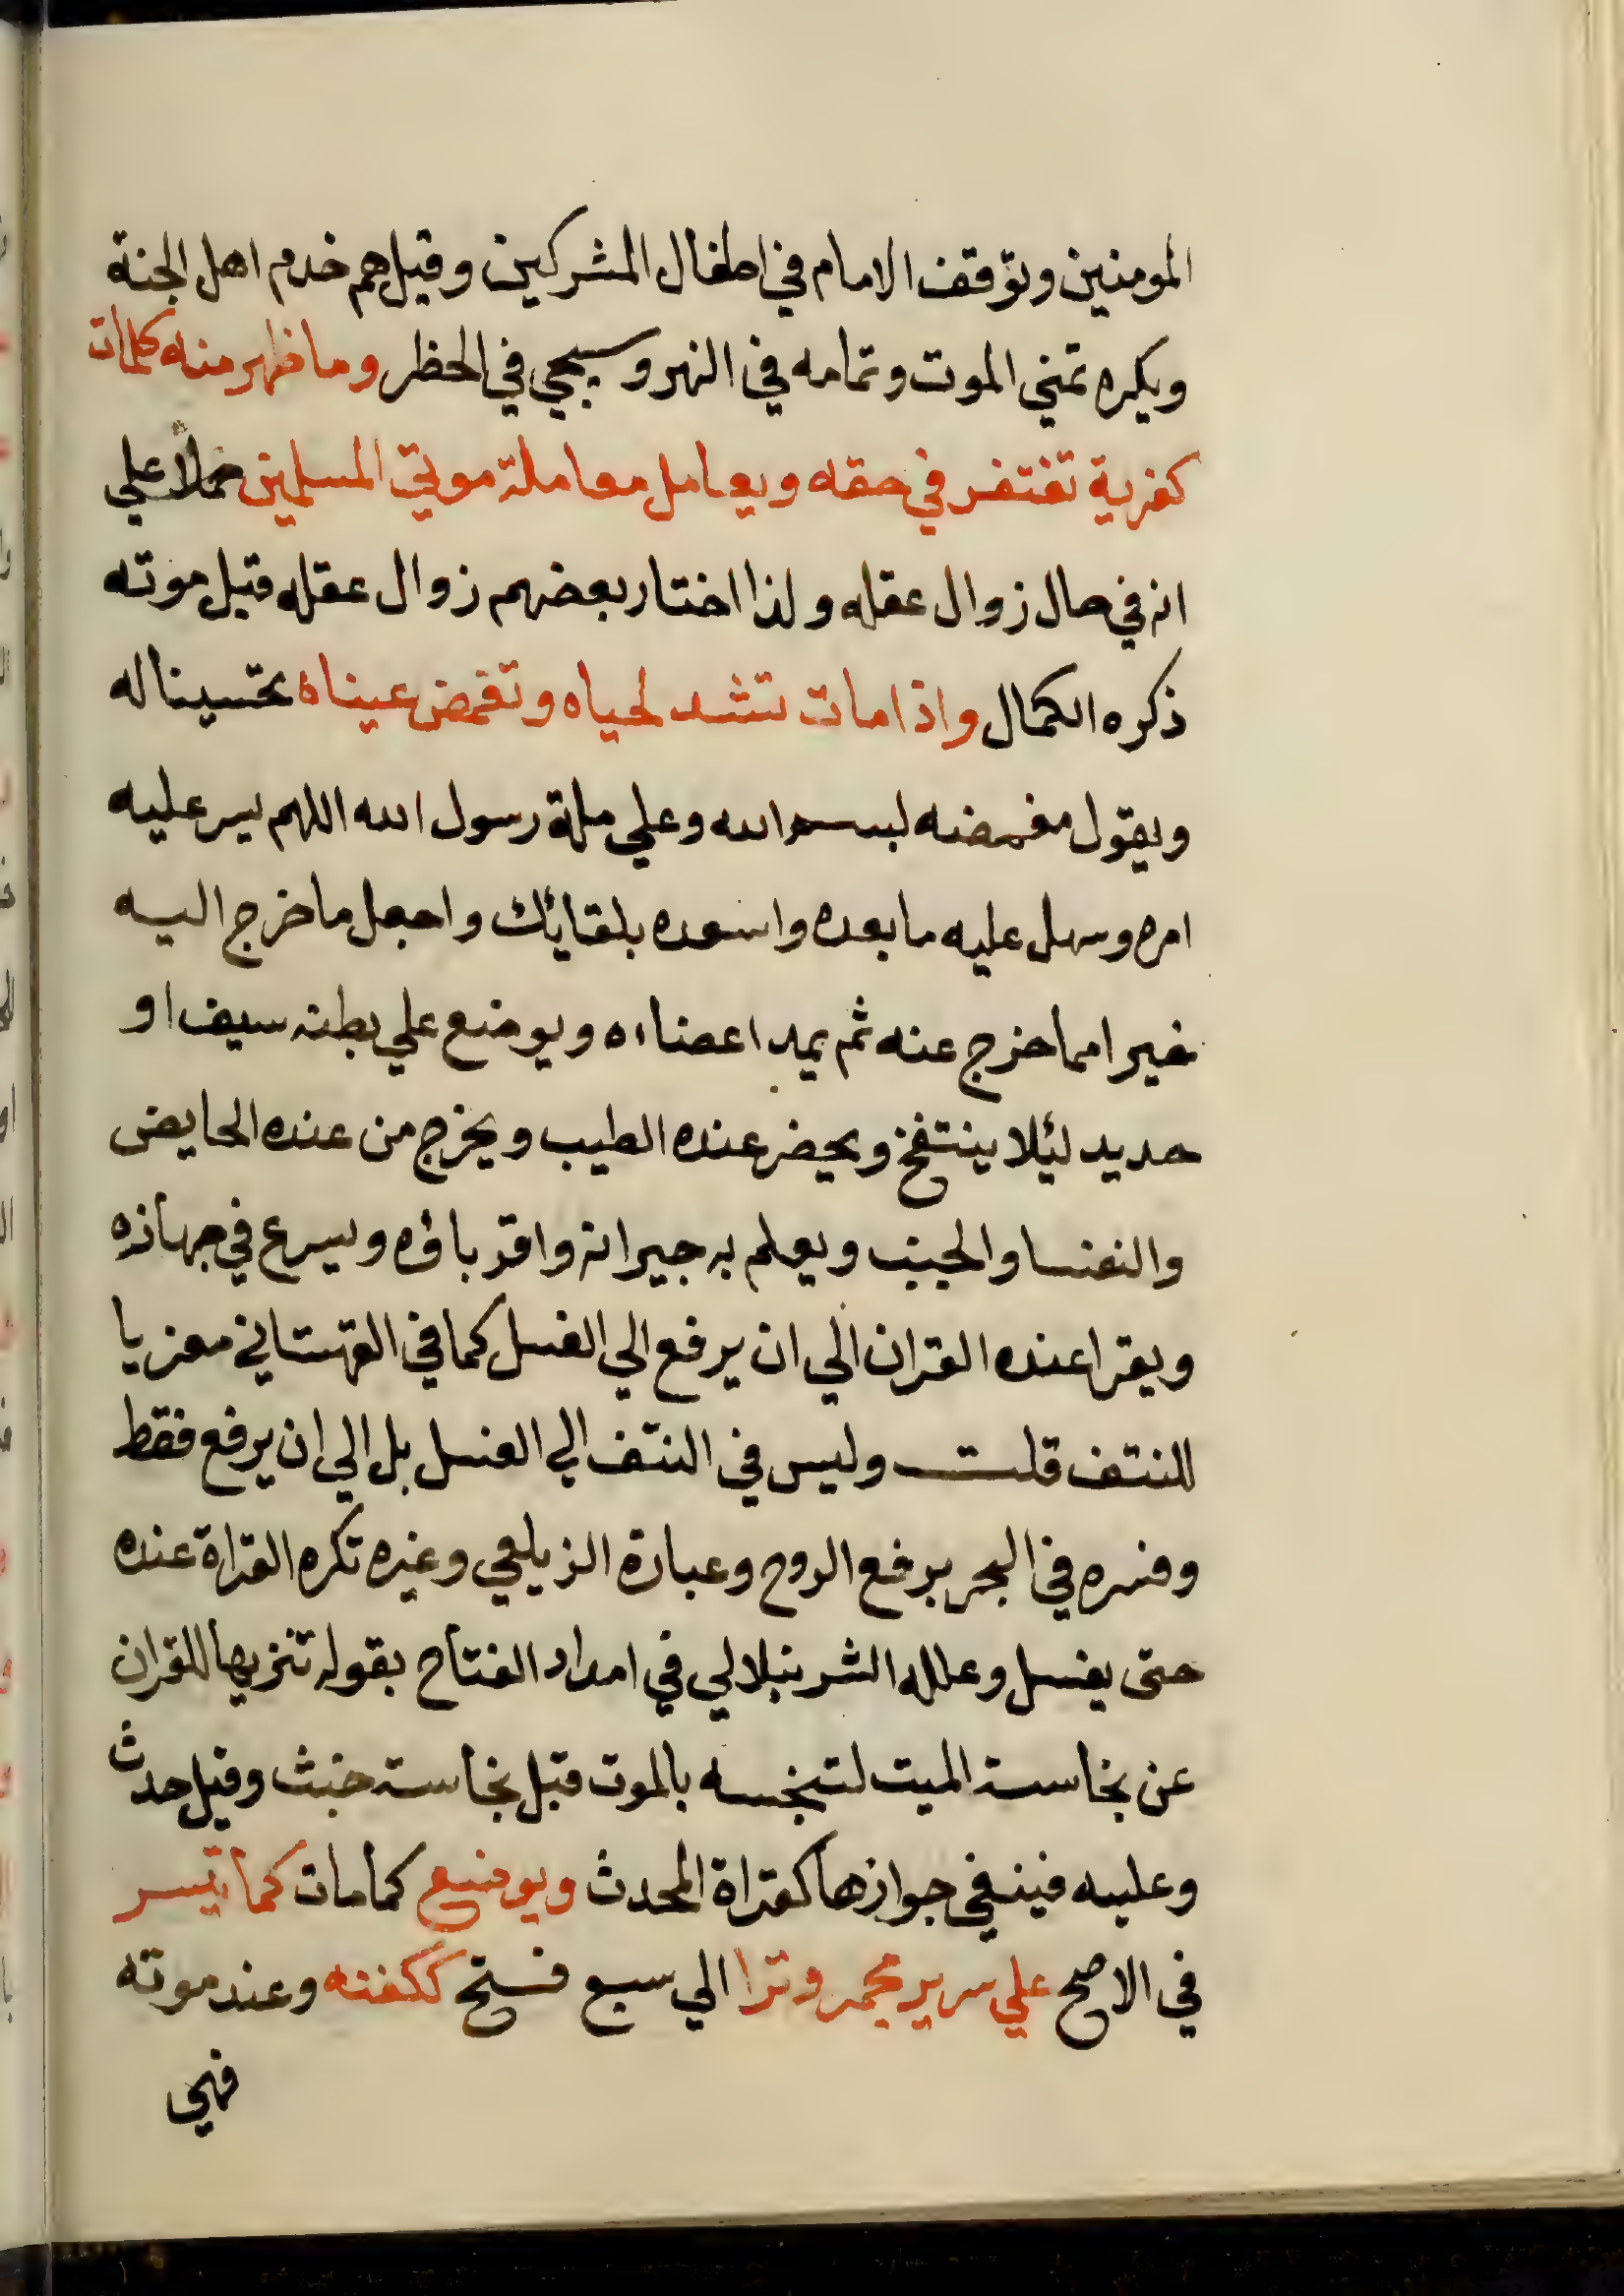 المومنين وتوقف الامام في اطفال المشركين وقيل هم خدم اهل الجنة
ويكره تمني الموت وتمامه في النهر وسيجي في الحظر وما ظهر منه كلمات
كفرية تغتفر في حقه ويعامل معاملة موتي المسلمين حملا علي
انه في حال زوال عقله ولذا اختار بعضهم زوال عقله قبل موته
ذكره الكمال واذا مات تشد لحياه وتغمض عيناه تحسينا له
ويقول مغمضه بسم الله وعلي ملة رسول الله اللهم يسر عليه
امره وسهل عليه ما بعده واسعده بلقايك واجعل ما خرج اليه
خيرا مما خرج عنه ثم يمد اعضاءه ويوضع علي بطنه سيف او
حديد ليلا ينتفخ ويحضر عنده الطيب ويخرج من عنده الحايض
والنفسا والجنب ويعلم به جيرانه واقرباؤه ويسرع في جهازه
ويقرا عنده القران الي ان يرفع الي الغسل كما في القهستاني معزيا
للنتف قلت وليس في النتف الي الغسل بل الي ان يرفع فقط
وفسره في البحر برفع الروح وعبارة الزيلعي وغيره تكره القراة عنده
حتى يغسل وعلله الشرنبلالي في امداد الفتاح بقوله تنزيها للقران
عن نجاسة الميت لتنجسه بالموت قبل نجاسة خبث وقيل حدث
وعليه فينبغي جوازها كقراة المحدث ويوضع كما مات كما تيسر
في الاصح علي سرير مجمر وترا الي سبع فتح ككفنه وعند موته
فهي